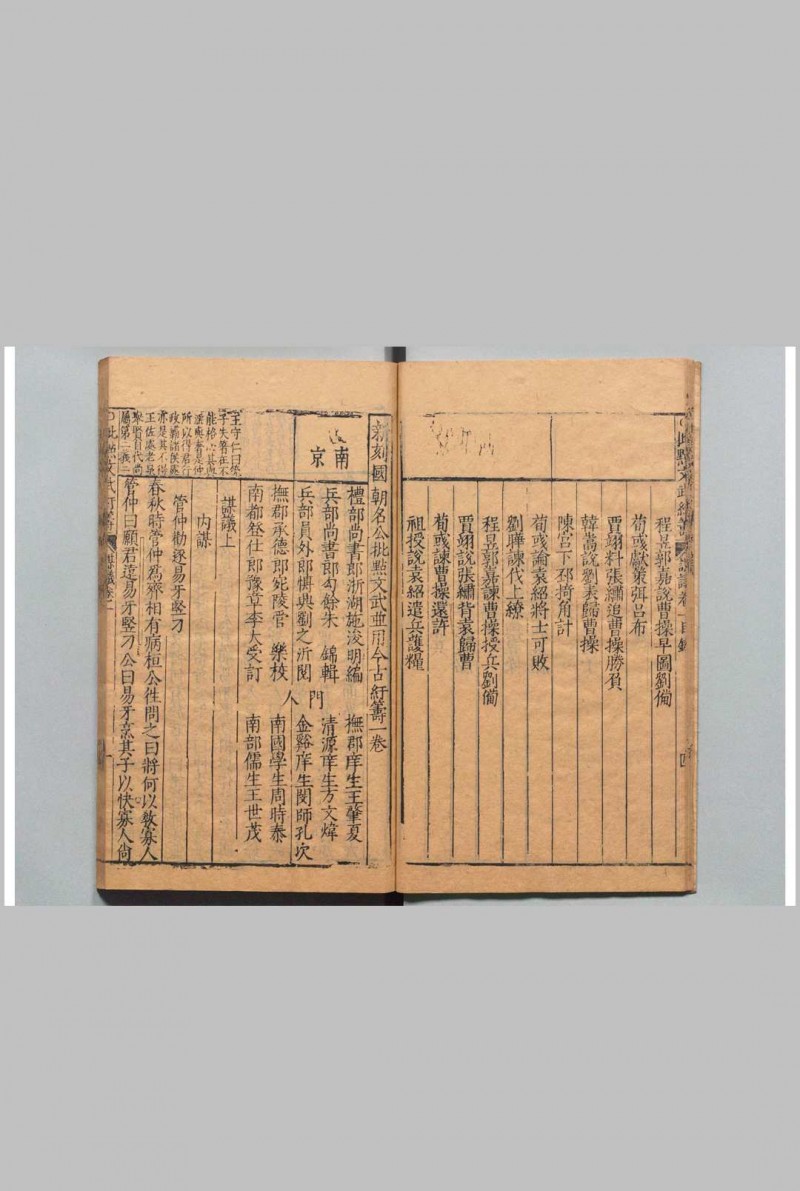 程昱郭嘉說曹操早圖劉備
荀彧獻策弭呂布
賈詡料張繡追曹操勝負
韓嵩說劉表歸曹操
陳宮下邳掎角計
荀彧論袁紹將士可敗
劉曄諫伐上繚
程昱郭嘉諫曹操授兵劉備
賈詡說張繡背袁歸曹
荀彧諫曹操還許
祖授說袁紹遣兵護糧
新刻國朝名公批點文武並用今古紆籌一卷
南京
禮部尚書郎浙湖施浚明編
兵部尚書郎勾餘朱 錦輯
兵部員外郎慎與劉之沂閱
撫郡承德郎宛陵雷 樂校
南都登仕郎豫章李大受訂
門人
撫郡庠生王肇夏
清源庠生方文煒
金谿庠生閔師孔次
南國學生周時泰
南部儒生王世茂
謀議上
內謀
管仲勸逐易牙豎刁
春秋時管仲為齊相有病桓公往問之曰將何以教寡人
管仲曰願君遠易牙豎刁公曰易牙烹其子以快寡人尚
王守仁曰管
子失著在不
所以得君行
政霸諸侯
亦是其不得
王佐處老